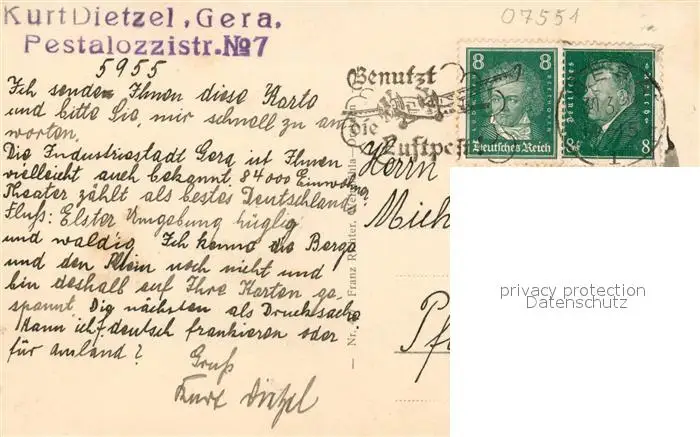 Kurt Dietzel, Gera,
Pestalozzistr. №7
5955
07551
Ich sende Ihnen diese Karte
und bitte Sie, mir schnell zu ant
worten.
Die Industriestadt Gera ist Ihnen
vielleicht auch bekannt. 84000 Einwohner.
Theater zählt als bestes Deutschland.
Fluss: Elster Umgebung hüglig
und waldig. Ich kenne die Berge
und den Rhein noch nicht und
bin deshalb auf Ihre Karten ge-
spannt. Die nächsten als Drucksache
Kann ich deutsch frankieren oder
für Ausland?
Gruß
Kurt Dietzel
Benutzt
die Luftpost
8 8
Deutsches Reich
Deutsches Reich
8
Herrn
Mich
Nr. Franz
privacy protection
Datenschutz